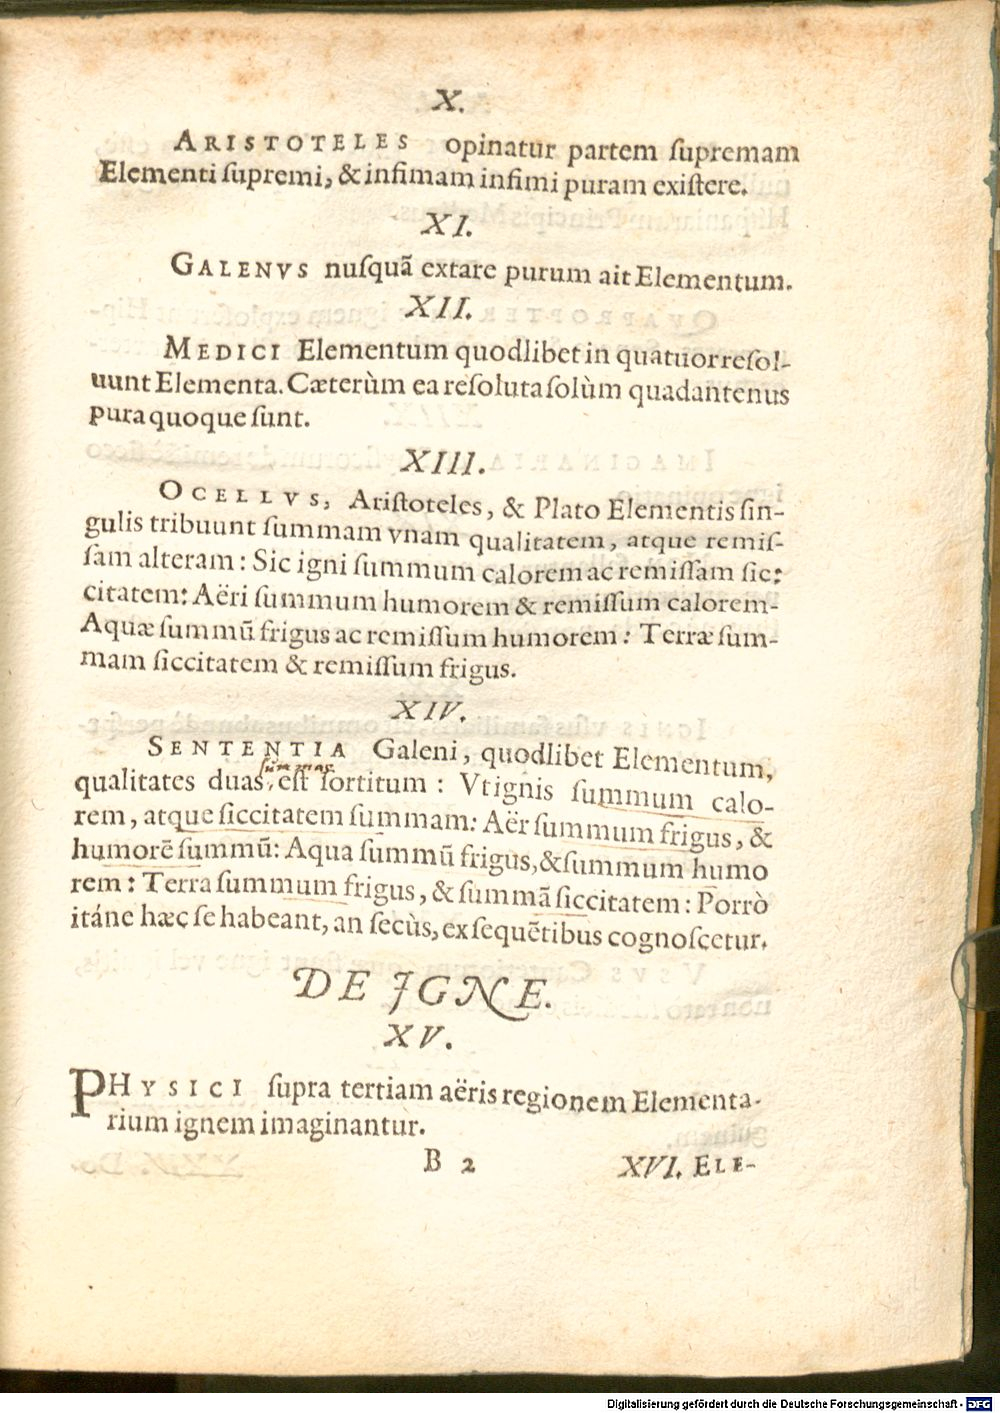 X.
ARISTOTELES opinatur partem ſupremam
Elementi ſupremi, & infimam infimi puram exiſtere.
XI.
GALENVS nuſquã extare purum ait Elementum.
XII.
MEDICI Elementum quodlibet in quatuor reſol-
uunt Elementa. Cæterùm ea reſoluta ſolùm quadantenus
pura quoque ſunt.
XIII.
OCELLVS, Ariſtoteles, & Plato Elementis ſin-
gulis tribuunt ſummam vnam qualitatem, atque remiſ-
ſam alteram: Sic igni ſummum calorem ac remiſſam ſic-
citatem: Aëri ſummum humorem & remiſſum calorem-
Aquæ ſummũ frigus ac remiſſum humorem: Terræ ſum-
mam ſiccitatem & remiſſum frigus.
XIV.
SENTENTIA Galeni, quodlibet Elementum,
ſum̃mas
qualitates duas, eſt ſortitum: Vt ignis ſummum calo-
rem, atque ſiccitatem ſummam: Aër ſummum frigus, &
humorẽ ſummũ: Aqua ſummũ frigus, & ſummum humo
rem: Terra ſummum frigus, & ſummã ſiccitatem: Porrò
itáne hæc ſe habeant, an ſecùs, ex ſequẽtibus cognoſcetur.
DE IGNE.
XV.
PHYSICI ſupra tertiam aëris regionem Elementa-
rium ignem imaginantur.
B 2
XVI. ELE-
Digitalisierung gefördert durch die Deutsche Forschungsgemeinschaft - DFG